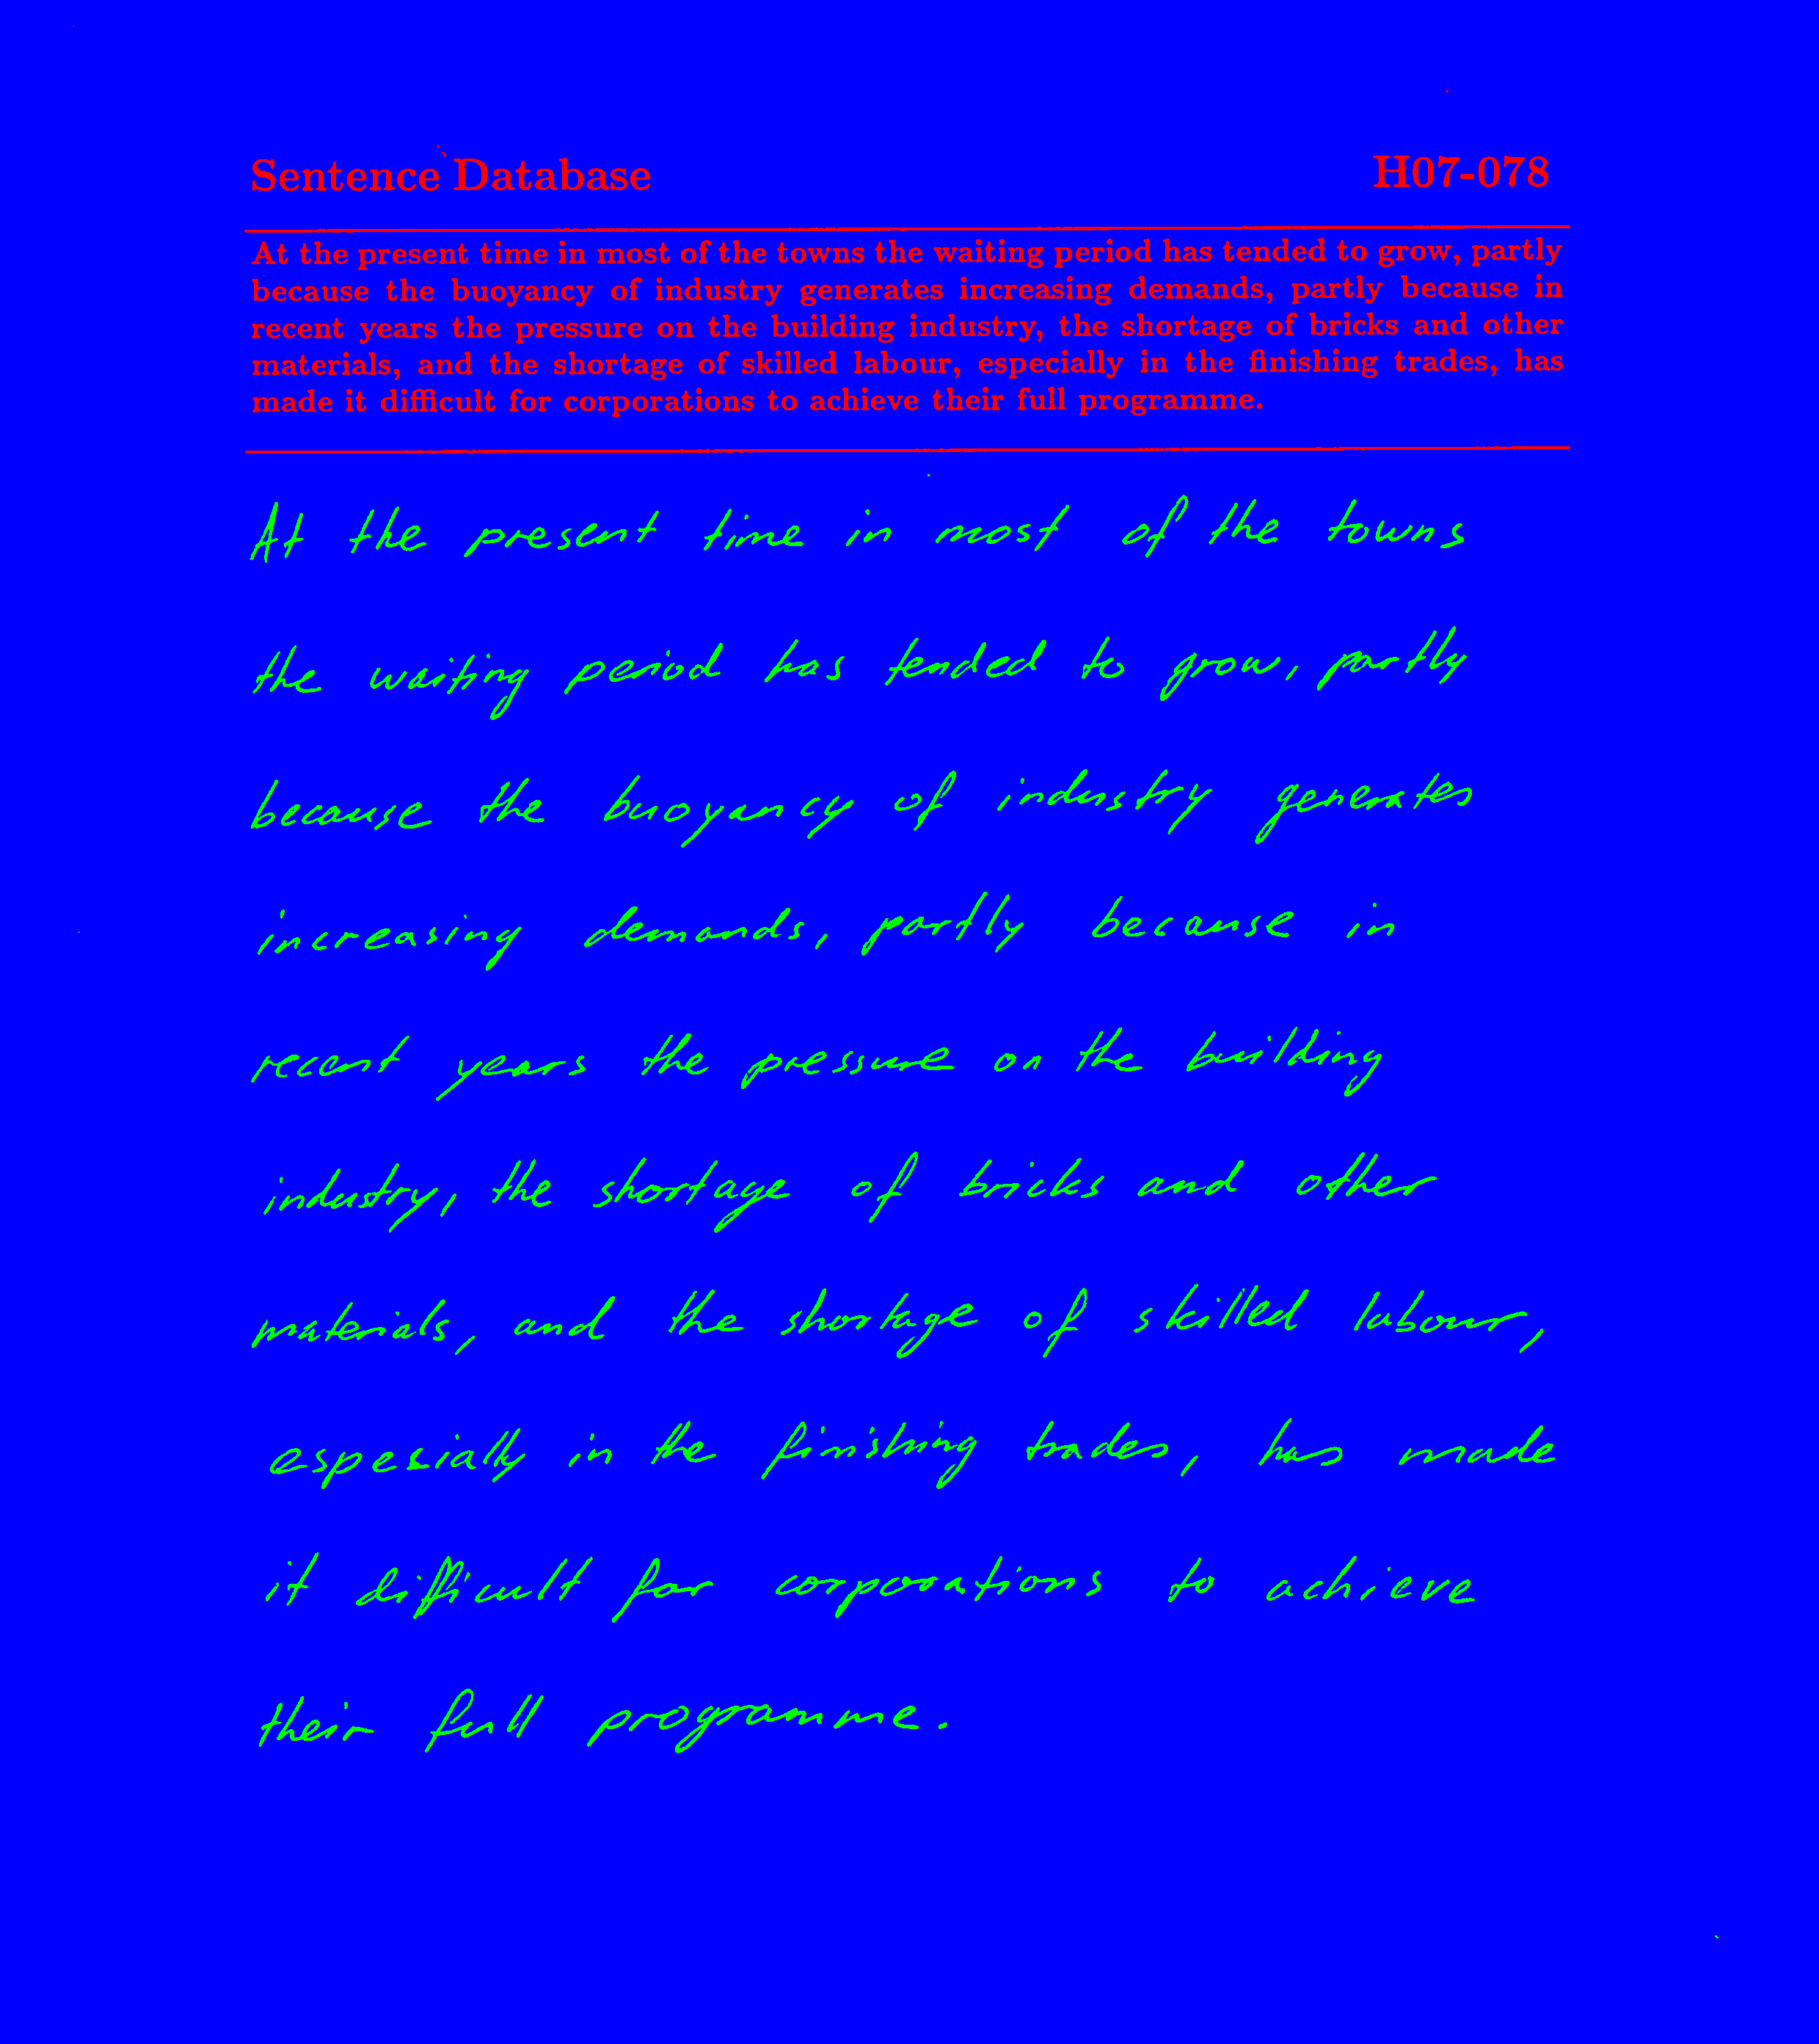 Sentence Database H07-078
At the present time in most of the towns the waiting period has tended to grow, partly
because the buoyancy of industry generates increasing demands, partly because in
recent years the pressure on the building industry, the shortage of bricks and other
materials, and the shortage of skilled labour, especially in the finishing trades, has
made it difficult for corporations to achieve their full programme.
At the present time in most of the towns
the waiting period has tended to grow, partly
because the buoyancy of industry generates
increasing demands, partly because in
recent years the pressure on the building
industry, the shortage of bricks and other
materials, and the shortage of skilled labour,
especially in the finishing trades, has made
it difficult for corporations to achieve
their full programme.